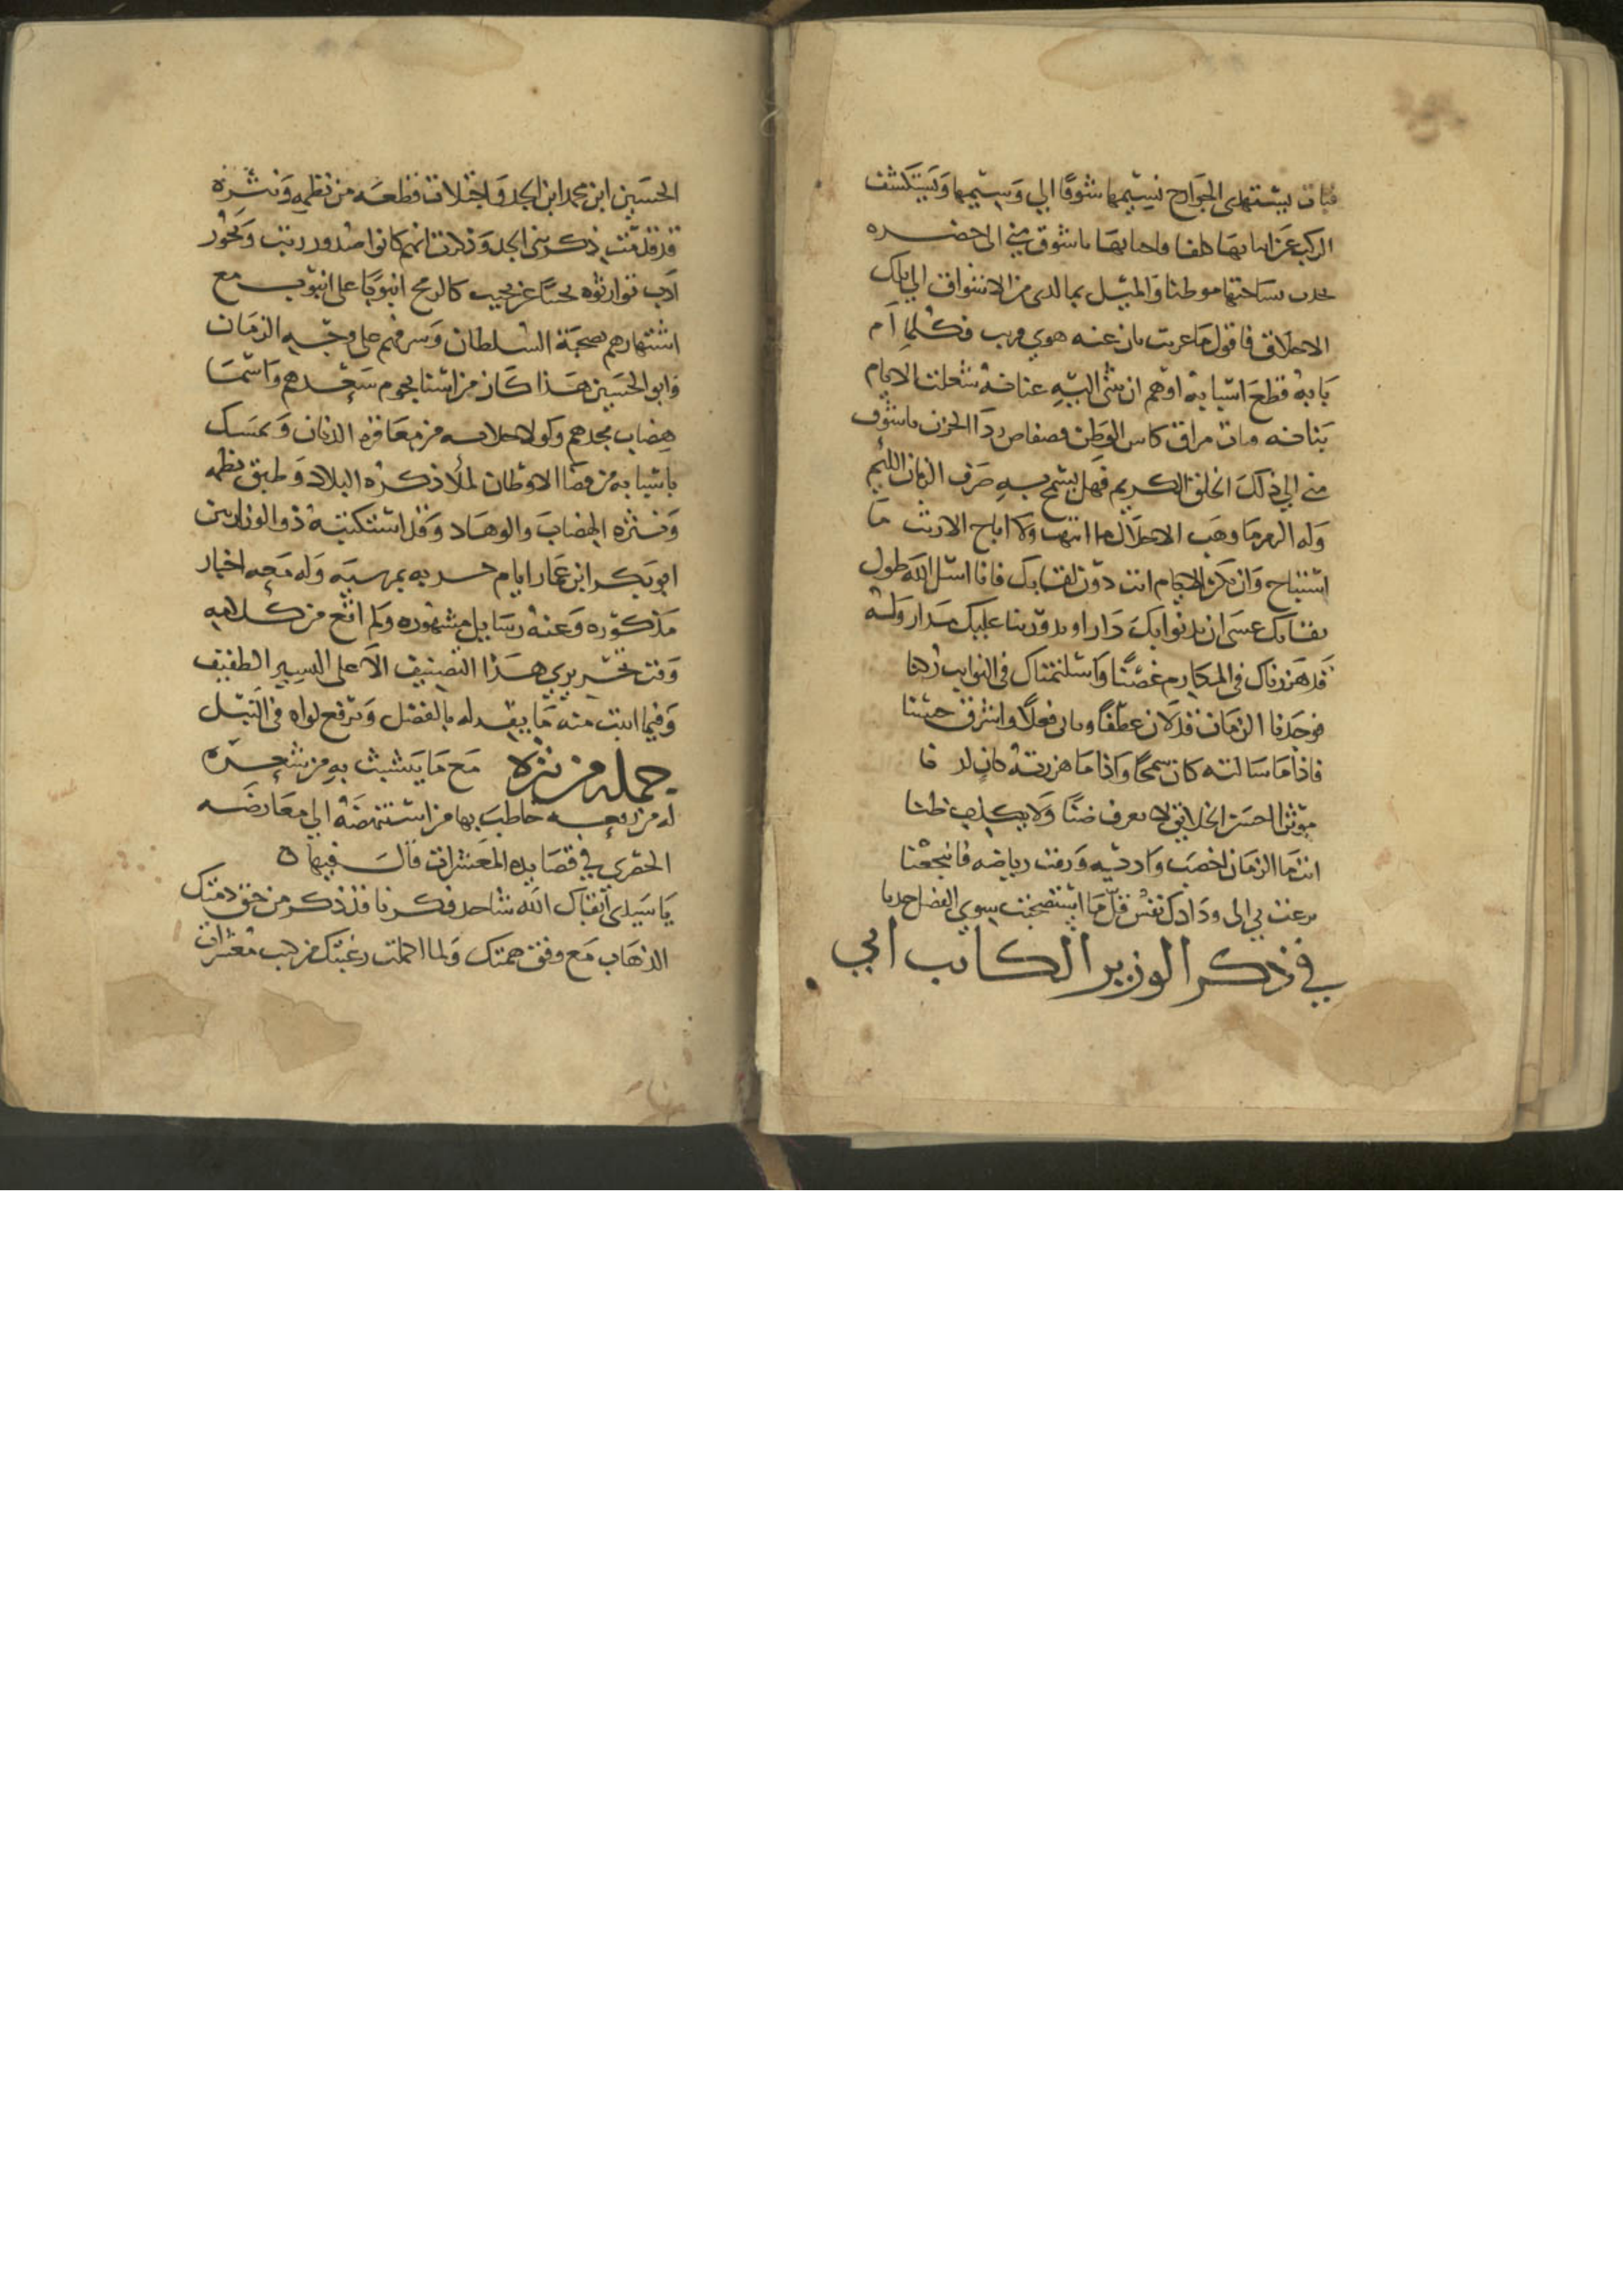 فبات يستهدي الجوارح نسيمها شوقا الي وسيمها ويستكشف
الركب عن اما بها واحبابها باشوق مني الى حضره
بساحتها موطنا والمثل بما لدى من الاشواق الي تلك
الاخلاق فاقول ما غريب بان عنه هوى قريب فكلما ام
بابه قطع اسبابه اوهم ان ثنى اليه عنانه شغلت الايام
بنانه وبات مراق كاس الوطن فضفاض ردا الحزن باشوق
مني الي ذلك الخلق الكريم فهل يسمح به صرف الزمان اللئيم
وله الدهر ما وهب الاجلال ما انتهب ولا اباح الا ريث ما
استباح وان تكن الايام انت دون لقايك فانا اسئل الله طول
بقايك عسى ان تدنوا بك دار او يدور بنا عليك مدار وله
قد هززناك في المكارم غصنا واستلمناك في النوايب ركنا
فوجدنا الزمان قد لان عطفا وتانى فعلا واشرق حسنا
فاذا ما سالته كان سمحا واذا ما هززته كان لدنا
موثرا احسن الخلايق لا يعرف ضنا ولا يكذب ظنا
انت ما الزمان اخصب واديه ورقت رياضه فانتجعنا
نزعت بي الى ودادك نفس قل ما استصحبت سوى الفضل خدنا
في ذكر الوزير الكاتب ابي
الحسين ابن محمد ابن الجد واجتلاب قطعه من نظمه ونثره
قد قدمت ذكر بني الجد وذكرت انهم كانوا صدور رتب وبحور
ادب توارثوه نجيبا عن نجيب كالرمح انبوبا على انبوب مع
اشتهارهم بصحبة السلطان وشرفهم على وجه الزمان
وابو الحسين هذا كان من اسنا نجوم سعدهم واسما
هضاب مجدهم ولولا من معاقره الدنان وتمسك
باسبابه من قضا الاوطان لملا ذكره البلاد وطبق نظمه
ونثره الهضاب والوهاد وقد استكتبه ذو الوزارتين
ابو بكر ابن عمار ايام به بمرسيه وله معه اخبار
مذكوره وعنه رسايل مشهوره ولم اقع من كلامه
وقت تحريري هذا التصنيف الا على اليسير الطفيف
وفيما اثبت منه ما يشهد له بالفضل ويرفع لواه في النبل
جمله من نثره مع ما يتشبث به من شعره
له من رقعه خاطب بها من استنهضه الي معارضه
الحصري في قصايده المعشرات قال فيها ه
يا سيدى ابقاك الله شاحد فكرنا قد ذكر من حق ذمتك
الذهاب مع وفق همتك ولما اكملت رغبتك من معشرات